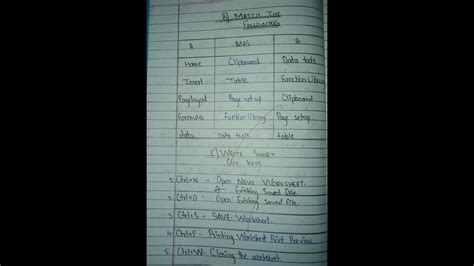 B) MATCH THE
FOLLOWING
A ANS B
Home Clipboard Data tools
Insert Table Function library
Pagelayout Page set up Clipboard
formula Funtion library Page setup
data Data tools table
C) WRITE SHORT
CUT KEYS
1. Ctrl+N - Open NEW WORKSHEET.
Existing Saved File.
2. Ctrl+O - Open Existing Saved File.
3. Ctrl+S - SAVE Worksheet.
4. Ctrl+P - Printing Worksheet Print Preview.
5. Ctrl+W - Closing the worksheet.